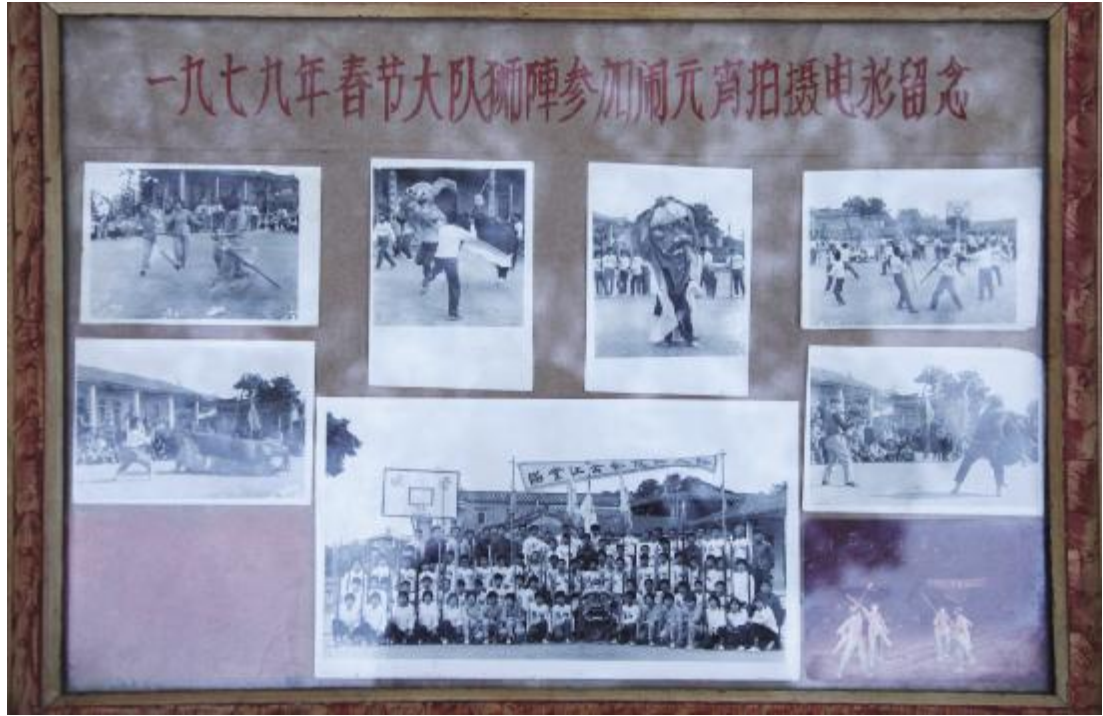 一九七九年春节大队狮陣参加闹元宵拍摄电影留念